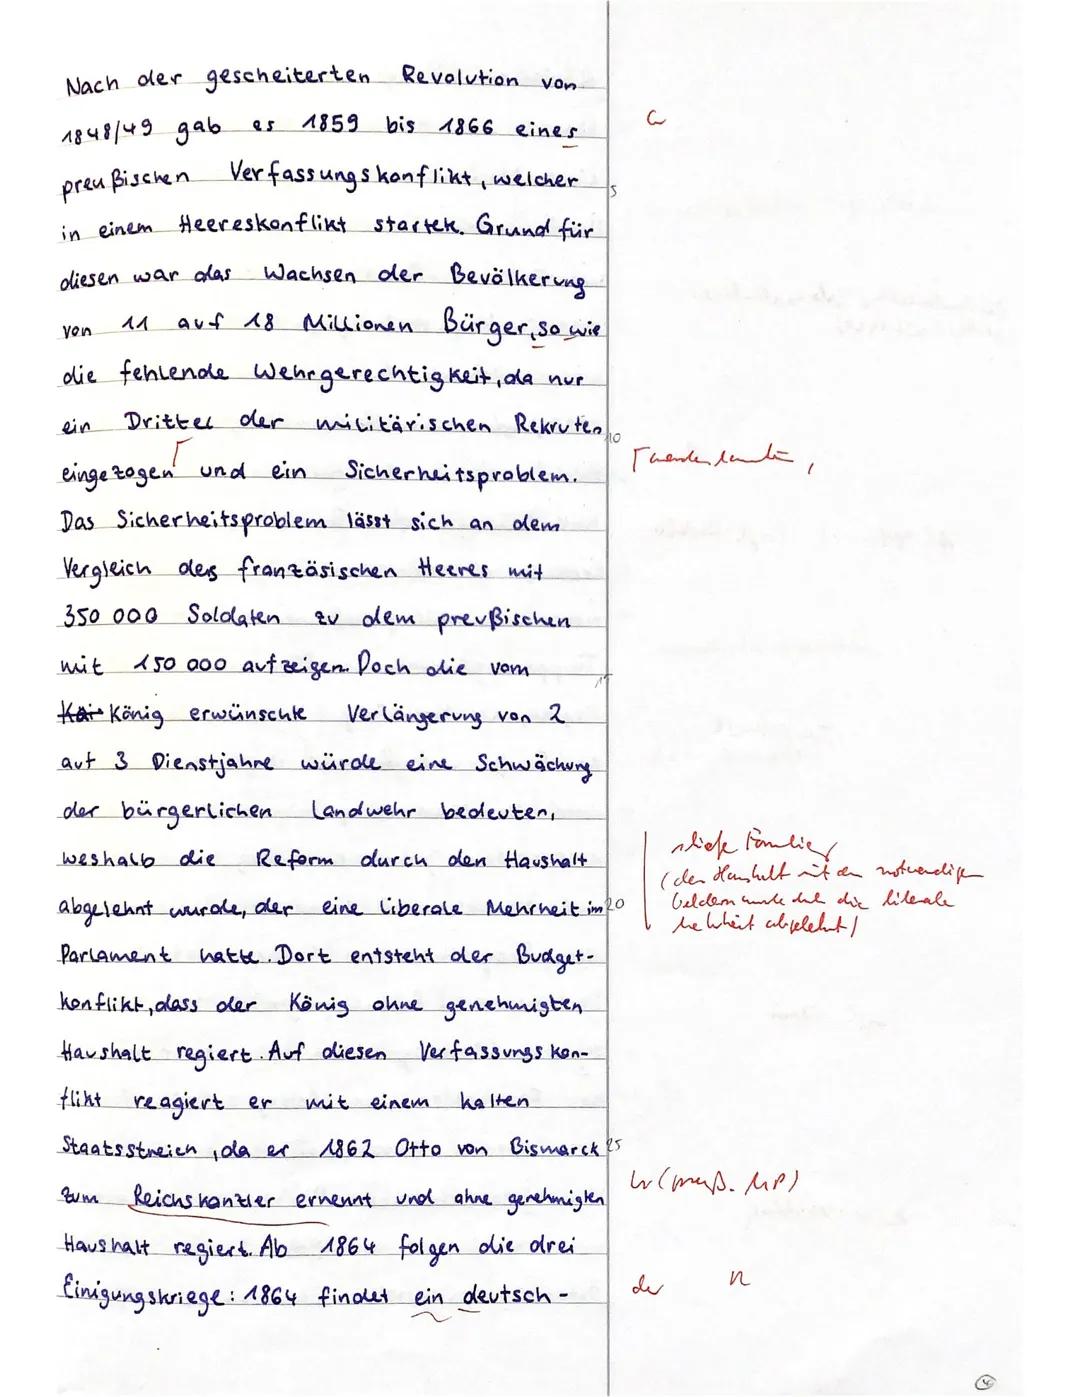 Nach der gescheiterten Revolution von
1848/49 gab es 1859 bis 1866 eines
preußischen Verfassungskonflikt, welcher
5
in einem Heereskonflikt startete. Grund für
diesen war das Wachsen der Bevölkerung
von 11 auf 18 Millionen Bürger, so wie
die fehlende Wehrgerechtigkeit, da nur
ein Drittel der militärischen Rekruten
10
eingezogen und ein Sicherheitsproblem.
Γ werden konnten,
Das Sicherheitsproblem lässt sich an dem
Vergleich des französischen Heeres mit
350 000 Soldaten zu dem preußischen
mit 150 000 aufzeigen. Doch die vom
15
König erwünschte Verlängerung von 2
auf 3 Dienstjahre würde eine Schwächung
der bürgerlichen Landwehr bedeuten,
weshalb die Reform durch den Haushalt
(der Haushalt mit den notwendigen
abgelehnt wurde, der eine liberale Mehrheit im
20
Geldern wurde durch die liberale
Mehrheit abgelehnt)
Parlament hatte. Dort entsteht der Budget-
konflikt, dass der König ohne genehmigten
Haushalt regiert. Auf diesen Verfassungskon-
flikt reagiert er mit einem kalten
Staatsstreich, da er 1862 Otto von Bismarck
25
zum Reichskanzler ernennt und ohne genehmigten
(preuß. MP)
Haushalt regiert. Ab 1864 folgen die drei
Einigungskriege: 1864 findet ein deutsch-
der